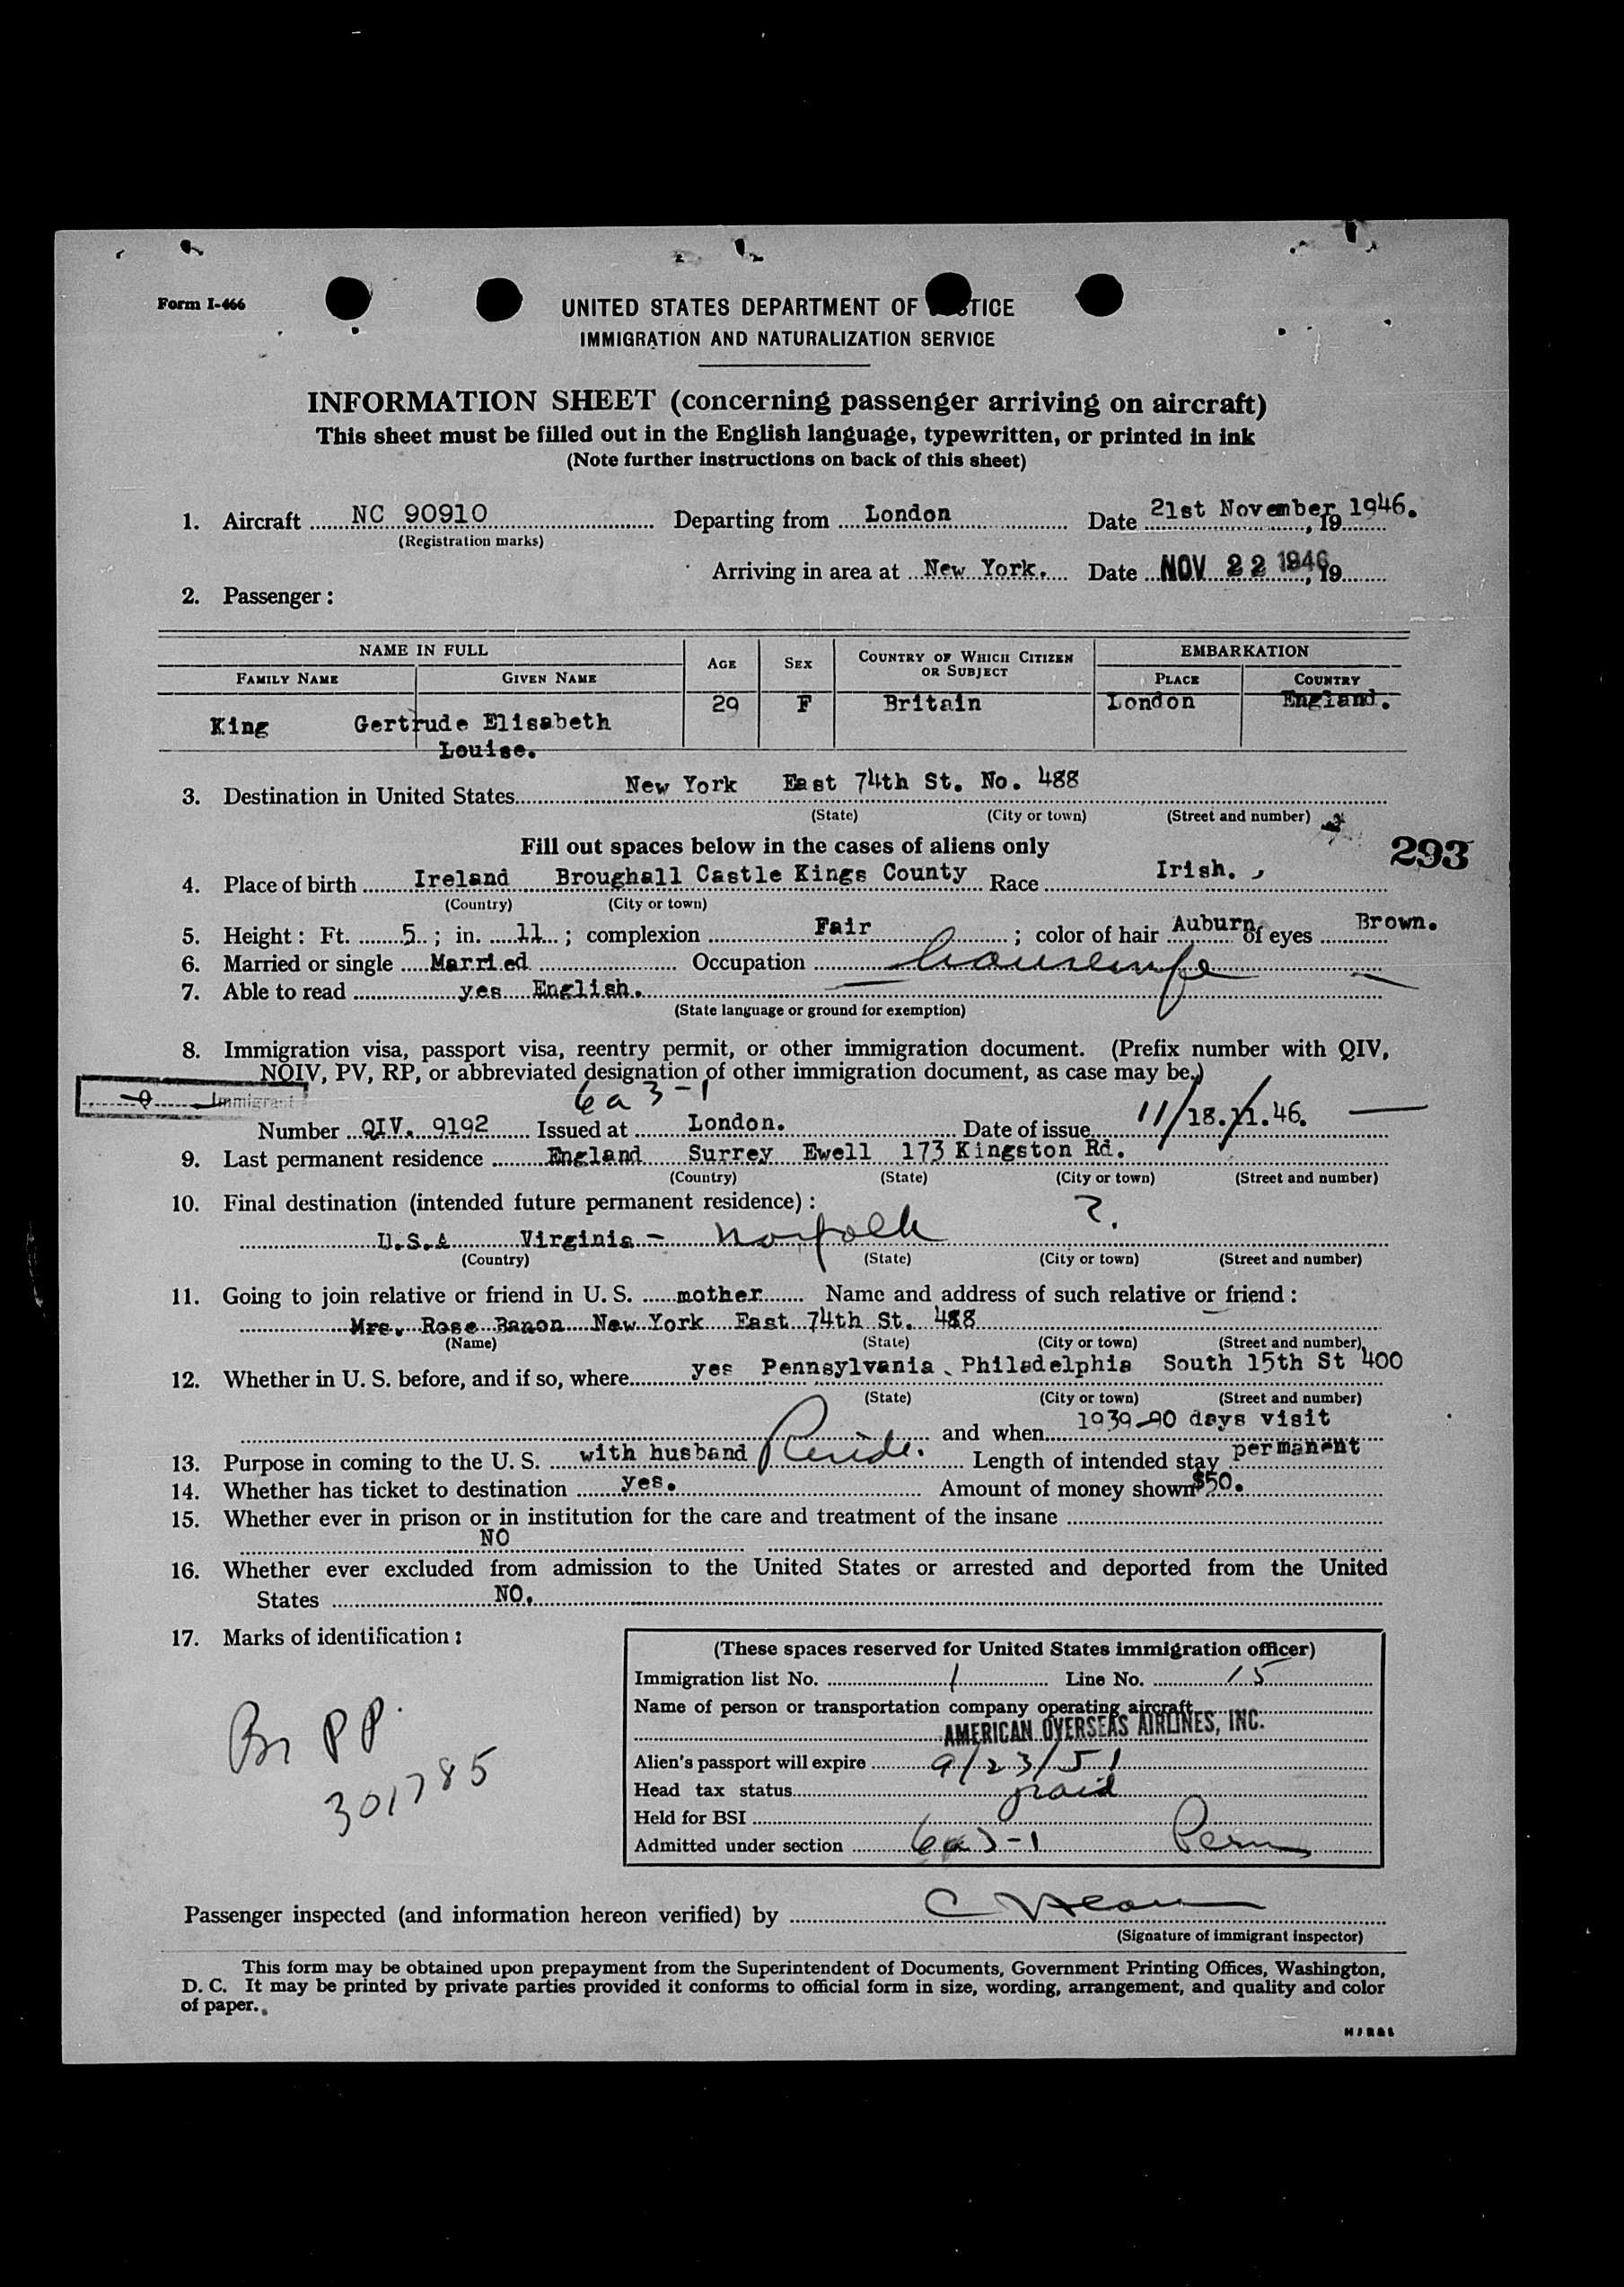 Form I-466
UNITED STATES DEPARTMENT OF JUSTICE
IMMIGRATION AND NATURALIZATION SERVICE
INFORMATION SHEET (concerning passenger arriving on aircraft)
This sheet must be filled out in the English language, typewritten, or printed in ink
(Note further instructions on back of this sheet)
1. Aircraft NC 90910 Departing from London Date 21st November, 19 1946.
(Registration marks)
Arriving in area at New York. Date NOV 22 1946, 19
2. Passenger:
NAME IN FULL AGE SEX COUNTRY OF WHICH CITIZEN OR SUBJECT EMBARKATION
FAMILY NAME GIVEN NAME PLACE COUNTRY
King Gertrude Elisabeth 29 F Britain London England.
Louise.
3. Destination in United States New York East 74th St. No. 488
(State) (City or town) (Street and number)
Fill out spaces below in the cases of aliens only
293
4. Place of birth Ireland Broughall Castle Kings County Race Irish.
(Country) (City or town)
5. Height: Ft. 5; in. 11; complexion Fair; color of hair Auburn of eyes Brown.
6. Married or single Married Occupation housewife
7. Able to read yes English.
(State language or ground for exemption)
8. Immigration visa, passport visa, reentry permit, or other immigration document. (Prefix number with QIV,
NQIV, PV, RP, or abbreviated designation of other immigration document, as case may be.)
Q Immigrant 6a3-1
Number QIV. 9192 Issued at London. Date of issue 11/18.11.46.
9. Last permanent residence England Surrey Ewell 173 Kingston Rd.
(Country) (State) (City or town) (Street and number)
10. Final destination (intended future permanent residence): ?.
U.S.A Virginia - Norfolk
(Country) (State) (City or town) (Street and number)
11. Going to join relative or friend in U. S. mother Name and address of such relative or friend:
Mrs. Rose Banon New York East 74th St. 488
(Name) (State) (City or town) (Street and number)
12. Whether in U. S. before, and if so, where yes Pennsylvania Philadelphia South 15th St 400
(State) (City or town) (Street and number)
and when 1939-90 days visit
13. Purpose in coming to the U. S. with husband Reside. Length of intended stay permanent
14. Whether has ticket to destination yes. Amount of money shown $50.
15. Whether ever in prison or in institution for the care and treatment of the insane
NO
16. Whether ever excluded from admission to the United States or arrested and deported from the United
States NO.
17. Marks of identification:
Br PP.
301785
(These spaces reserved for United States immigration officer)
Immigration list No. 1 Line No. 15
Name of person or transportation company operating aircraft
AMERICAN OVERSEAS AIRLINES, INC.
Alien's passport will expire 9/23/51
Head tax status paid
Held for BSI
Admitted under section 6a3-1 Perm
Passenger inspected (and information hereon verified) by
(Signature of immigrant inspector)
This form may be obtained upon prepayment from the Superintendent of Documents, Government Printing Offices, Washington,
D. C. It may be printed by private parties provided it conforms to official form in size, wording, arrangement, and quality and color
of paper.